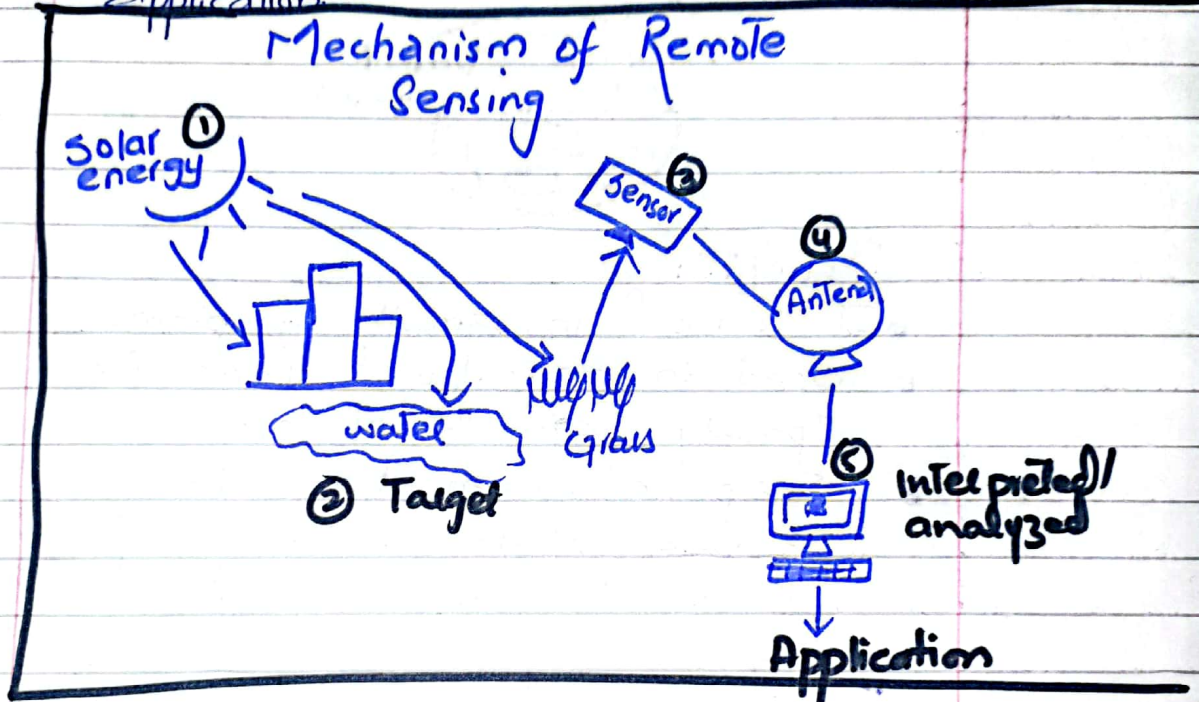 Application.
Mechanism of Remote
Sensing
① Solar
energy
③ Sensor
④
Antena
water
Grass
② Target
⑤ Interpreted/
analyzed
Application